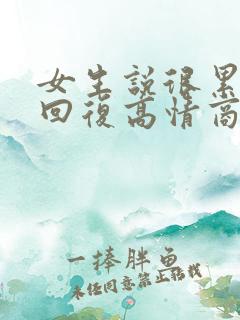 女生說很累
回復高情商
一捧胖鱼
未經同意禁止转載